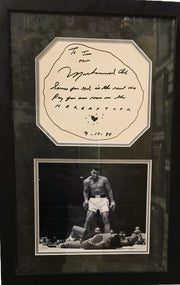 To
from
Muhammad Ali
for God, is the rent we
Pay for our room in the
HEREAFTER